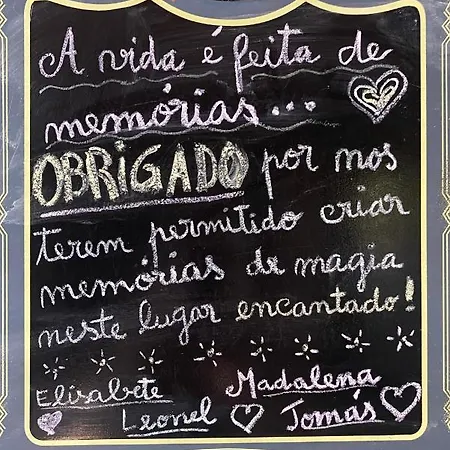 A vida é feita de
memórias...
OBRIGADO por nos
terem permitido criar
memórias de magia
neste lugar encantado!
Elisabete Madalena
Leonel Tomás